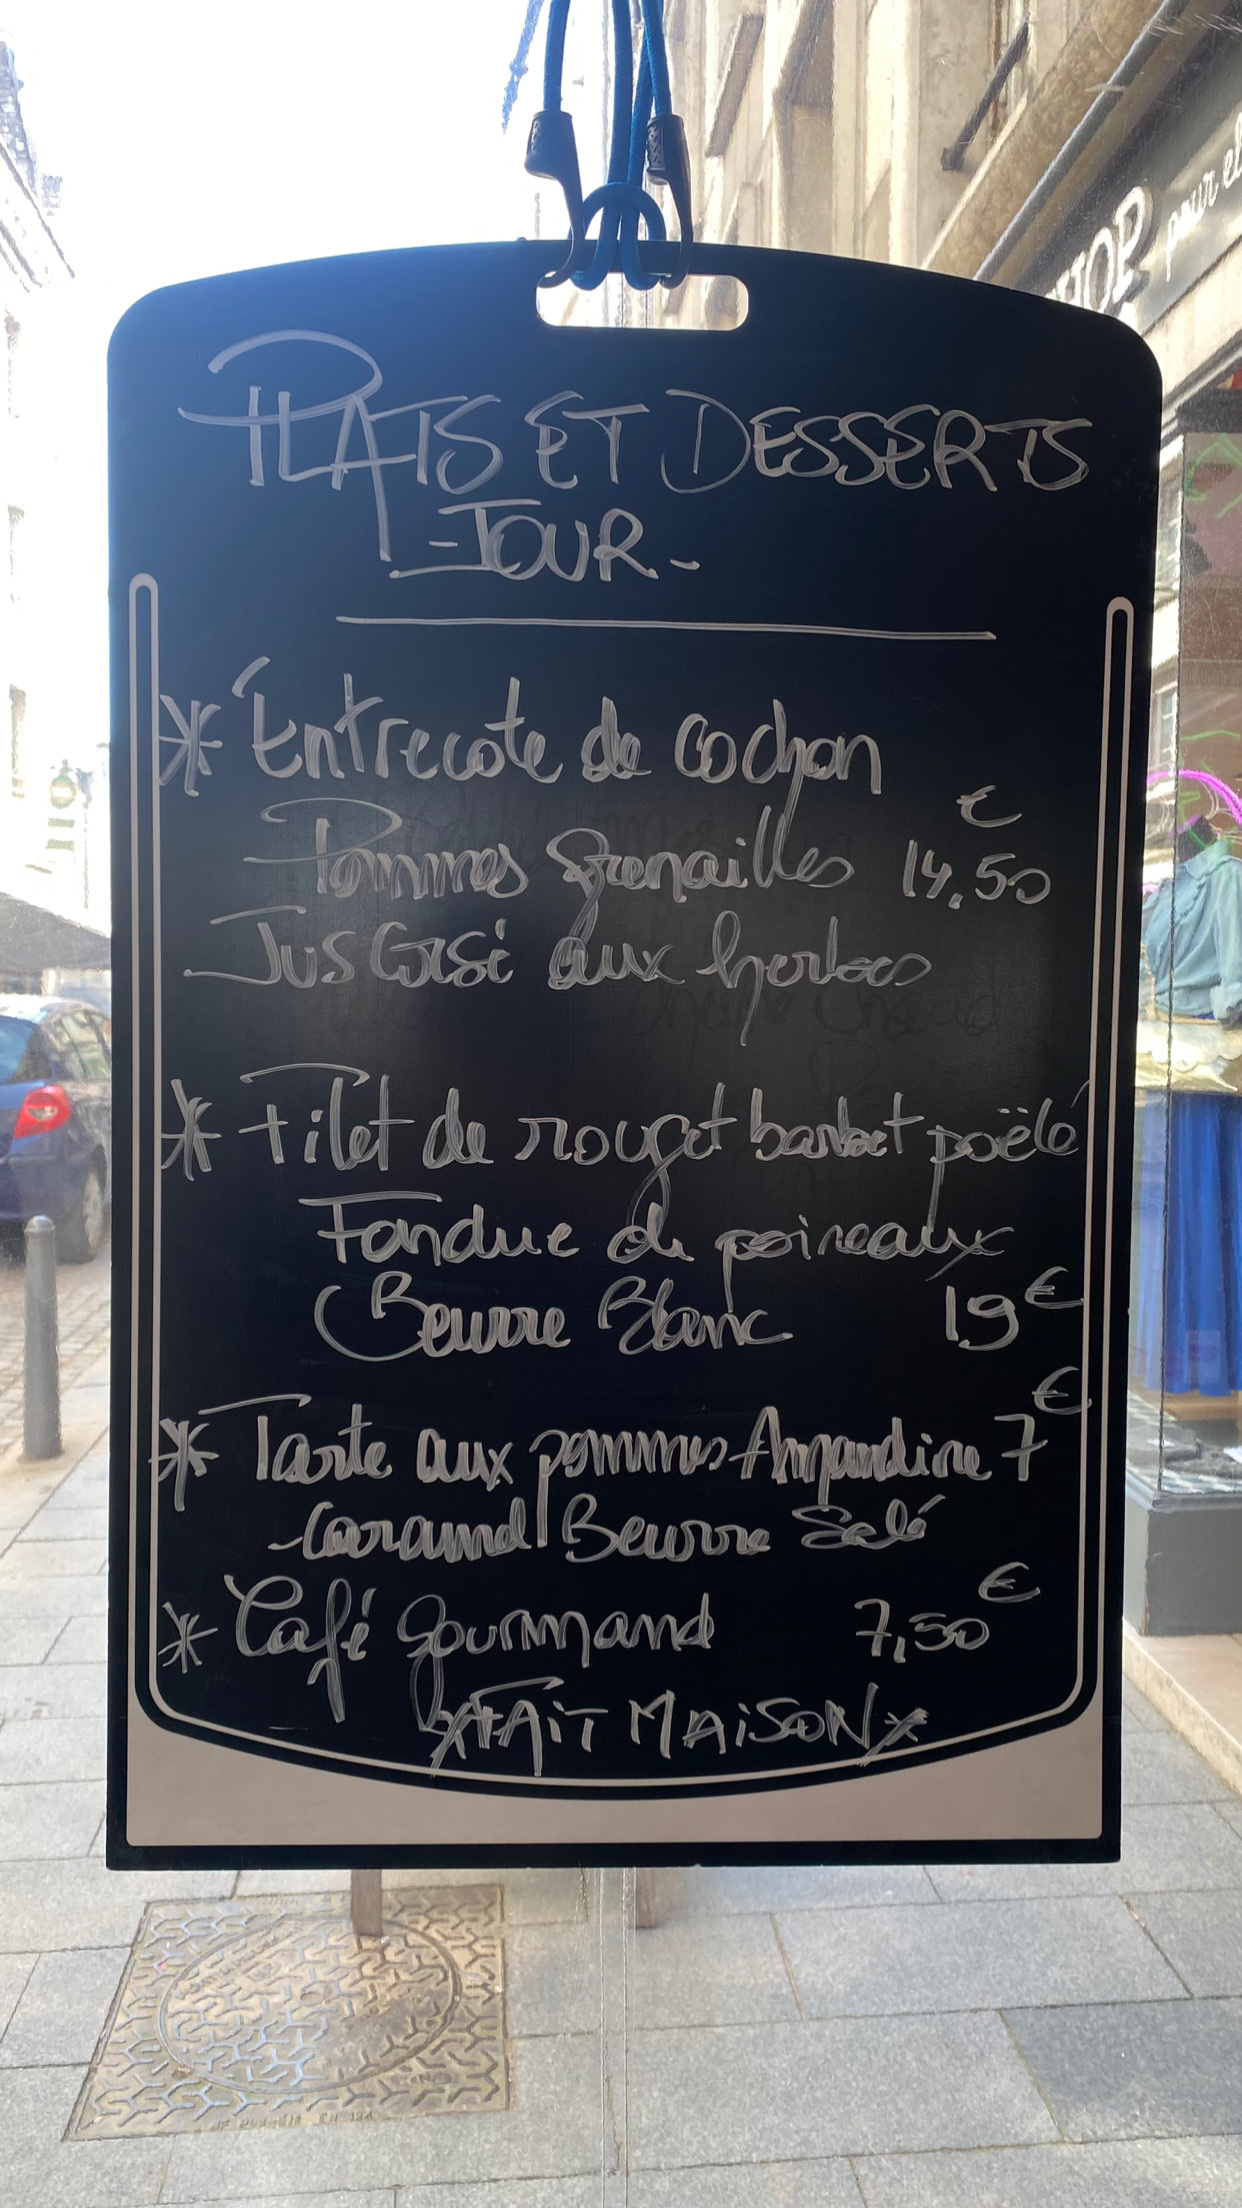 PLATS ET DESSERTS
- JOUR -
* Entrecote de cochon
Pommes grenailles 14,50 €
Jus Corsé aux herbes
* Filet de rouget barbet poëlé
Fondue de poireaux
Beurre Blanc 19 €
* Tarte aux pommes Amandine 7 €
Caramel Beurre Salé
* Café gourmand 7,50 €
* FAIT MAISON *
HOP pour el